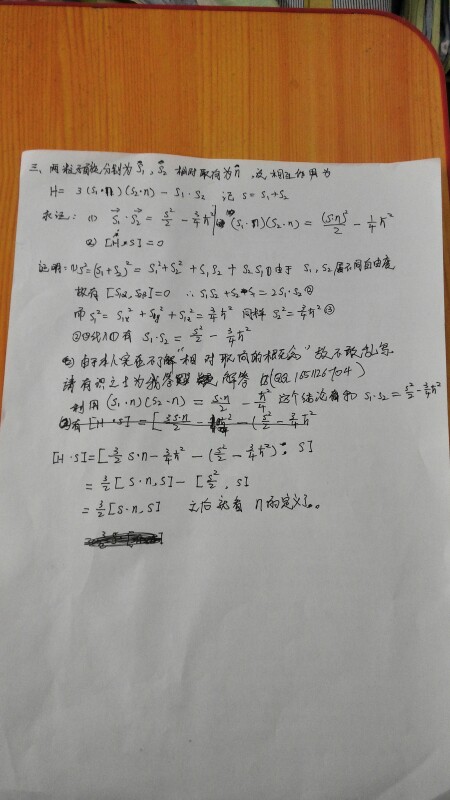 三、两粒子自旋分别为 S⃗₁, S⃗₂ 相对取向为 n⃗, 设相互作用为
H= 3(S₁·n)(S₂·n) - S₁·S₂ 记 S=S₁+S₂
求证: (1) S⃗₁·S⃗₂ = S²/2 - 3/4 ħ² (S₁·n)(S₂·n) = (S·n)²/2 - 1/4 ħ²
(2) [H, S]=0
证明: (1) S²=(S₁+S₂)² = S₁²+S₂² + S₁S₂ + S₂S₁ ① 由于 S₁, S₂ 属不同自由度
故有 [S₁α, S₂β]=0 ∴ S₁S₂+S₂S₁ = 2S₁·S₂ ②
而 S₁² = S₁ₓ² + S₁y² + S₁z² = 3/4 ħ² 同样 S₂² = 3/4 ħ² ③
②③代入① 有 S₁·S₂ = S²/2 - 3/4 ħ²
由于本人实在不了解“相对取向的概念” 故不敢乱写
请有识之士为我解答 (QQ 1651126704)
利用 (S₁·n)(S₂·n) = S·n/2 - ħ²/4 这个结论有和 S₁·S₂ = S²/2 - 3/4 ħ²
(2)有 [H·S] = [3S·n/2 - ħ²/4 - (S²/2 - 3/4 ħ²
[H·S]=[3/2 S·n - 3/4 ħ² - (S²/2 - 3/4 ħ²), S]
= 3/2 [S·n, S] - [S²/2, S]
= 3/2 [S·n, S] 之后就看 n的定义了。